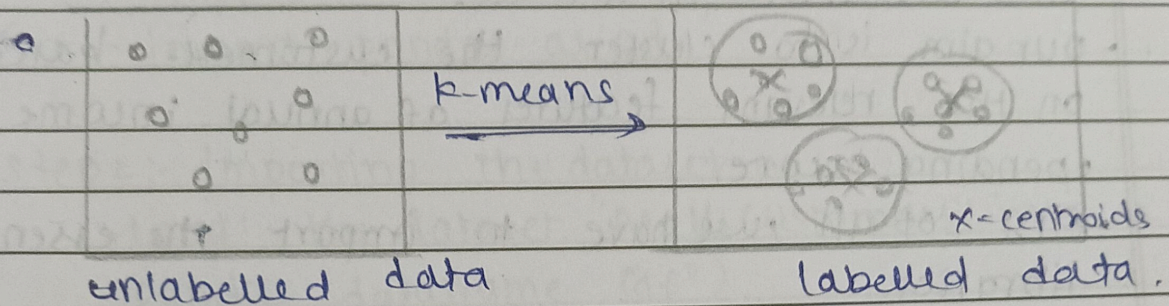 k-means
x-centroids
unlabelled data
labelled data.